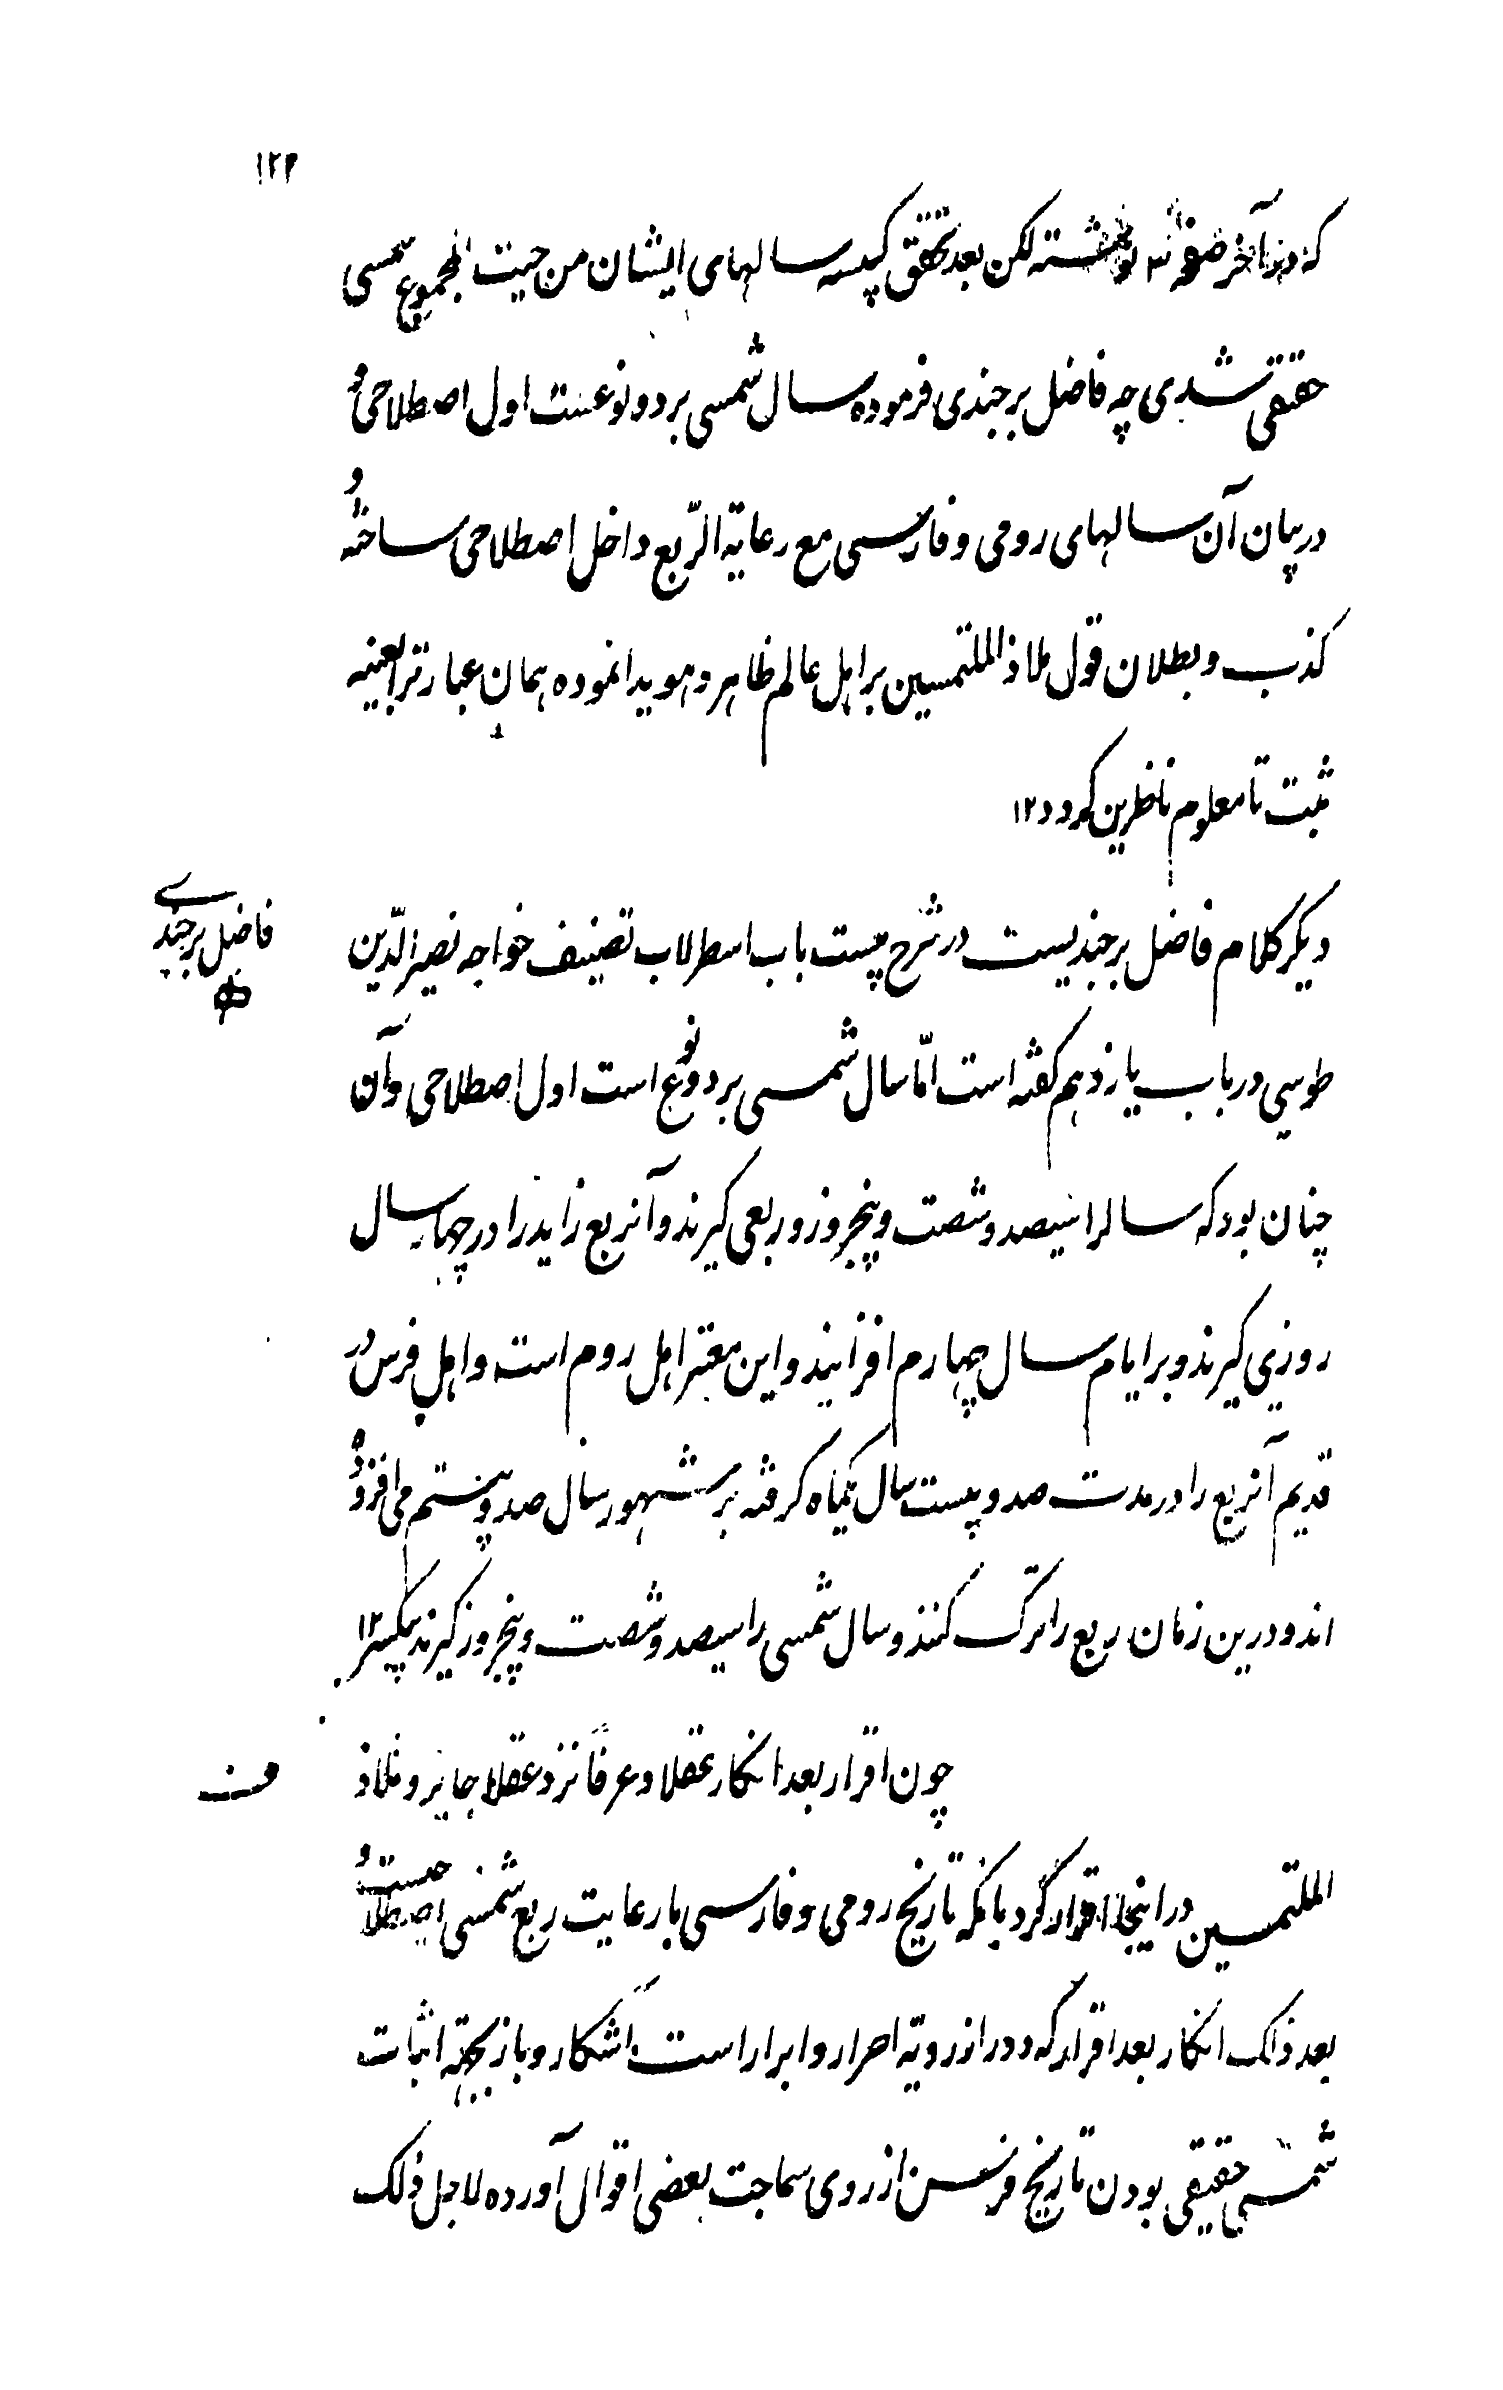 ۱۲۳
که در آخر صفحه ۳ نوشته لکن بعد تحقق کبیسه سالهای ایشان من حیث المجموع شمسی
حقیقی شدی چه فاضل برجندی فرموده سال شمسی بر دو نوعست اول اصطلاحی و
در بیان آن سالهای رومی و فارسی مع رعایة الربع داخل اصطلاحی ساخته و
کذب و بطلان قول ملاذ الملتمسین بر اهل عالم ظاهر و هویدا نموده همان عبارترا بعینه
ثبت تا معلوم ناظرین کردد ۱۲
دیکر کلام فاضل برجندیست در شرح بیست باب اسطرلاب تصنیف خواجه نصیر الدین
فاضل برجندی
طوسی در باب یازدهم کفته است امّا سال شمسی بر دو نوع است اول اصطلاحی و آن
چنان بود که سالرا سیصد و شصت و پنجروز و ربعی کیرند و آنربع زاید را در چهار سال
روزی کیرند و بر ایام سال چهارم افزایند و این معتبر اهل روم است و اهل فرس در
قدیم آنربع را در مدت صد و بیست سال یکماه کرفته بر شهور سال صد و بیستم می افزوده
اند و درین زمان ربع را ترک کنند و سال شمسی را سیصد و شصت و پنجروز کیرند بیکسر ۱۲
چون اقرار بعد انکار عقلا و عرفاً نزد عقلا جایز و ملاذ
الملتمسین در اینجا اقرار کرد بانکه تاریخ رومی و فارسی با رعایت ربع شمسی اصطلاحیست و
بعد ذالک انکار بعد اقرار که دور از رویّه احرار و ابرار است آشکار و باز بجهة اثبات
شمسی حقیقی بودن تاریخ فرس از روی سماجت بعضی اقوال آورده لاجل ذلک